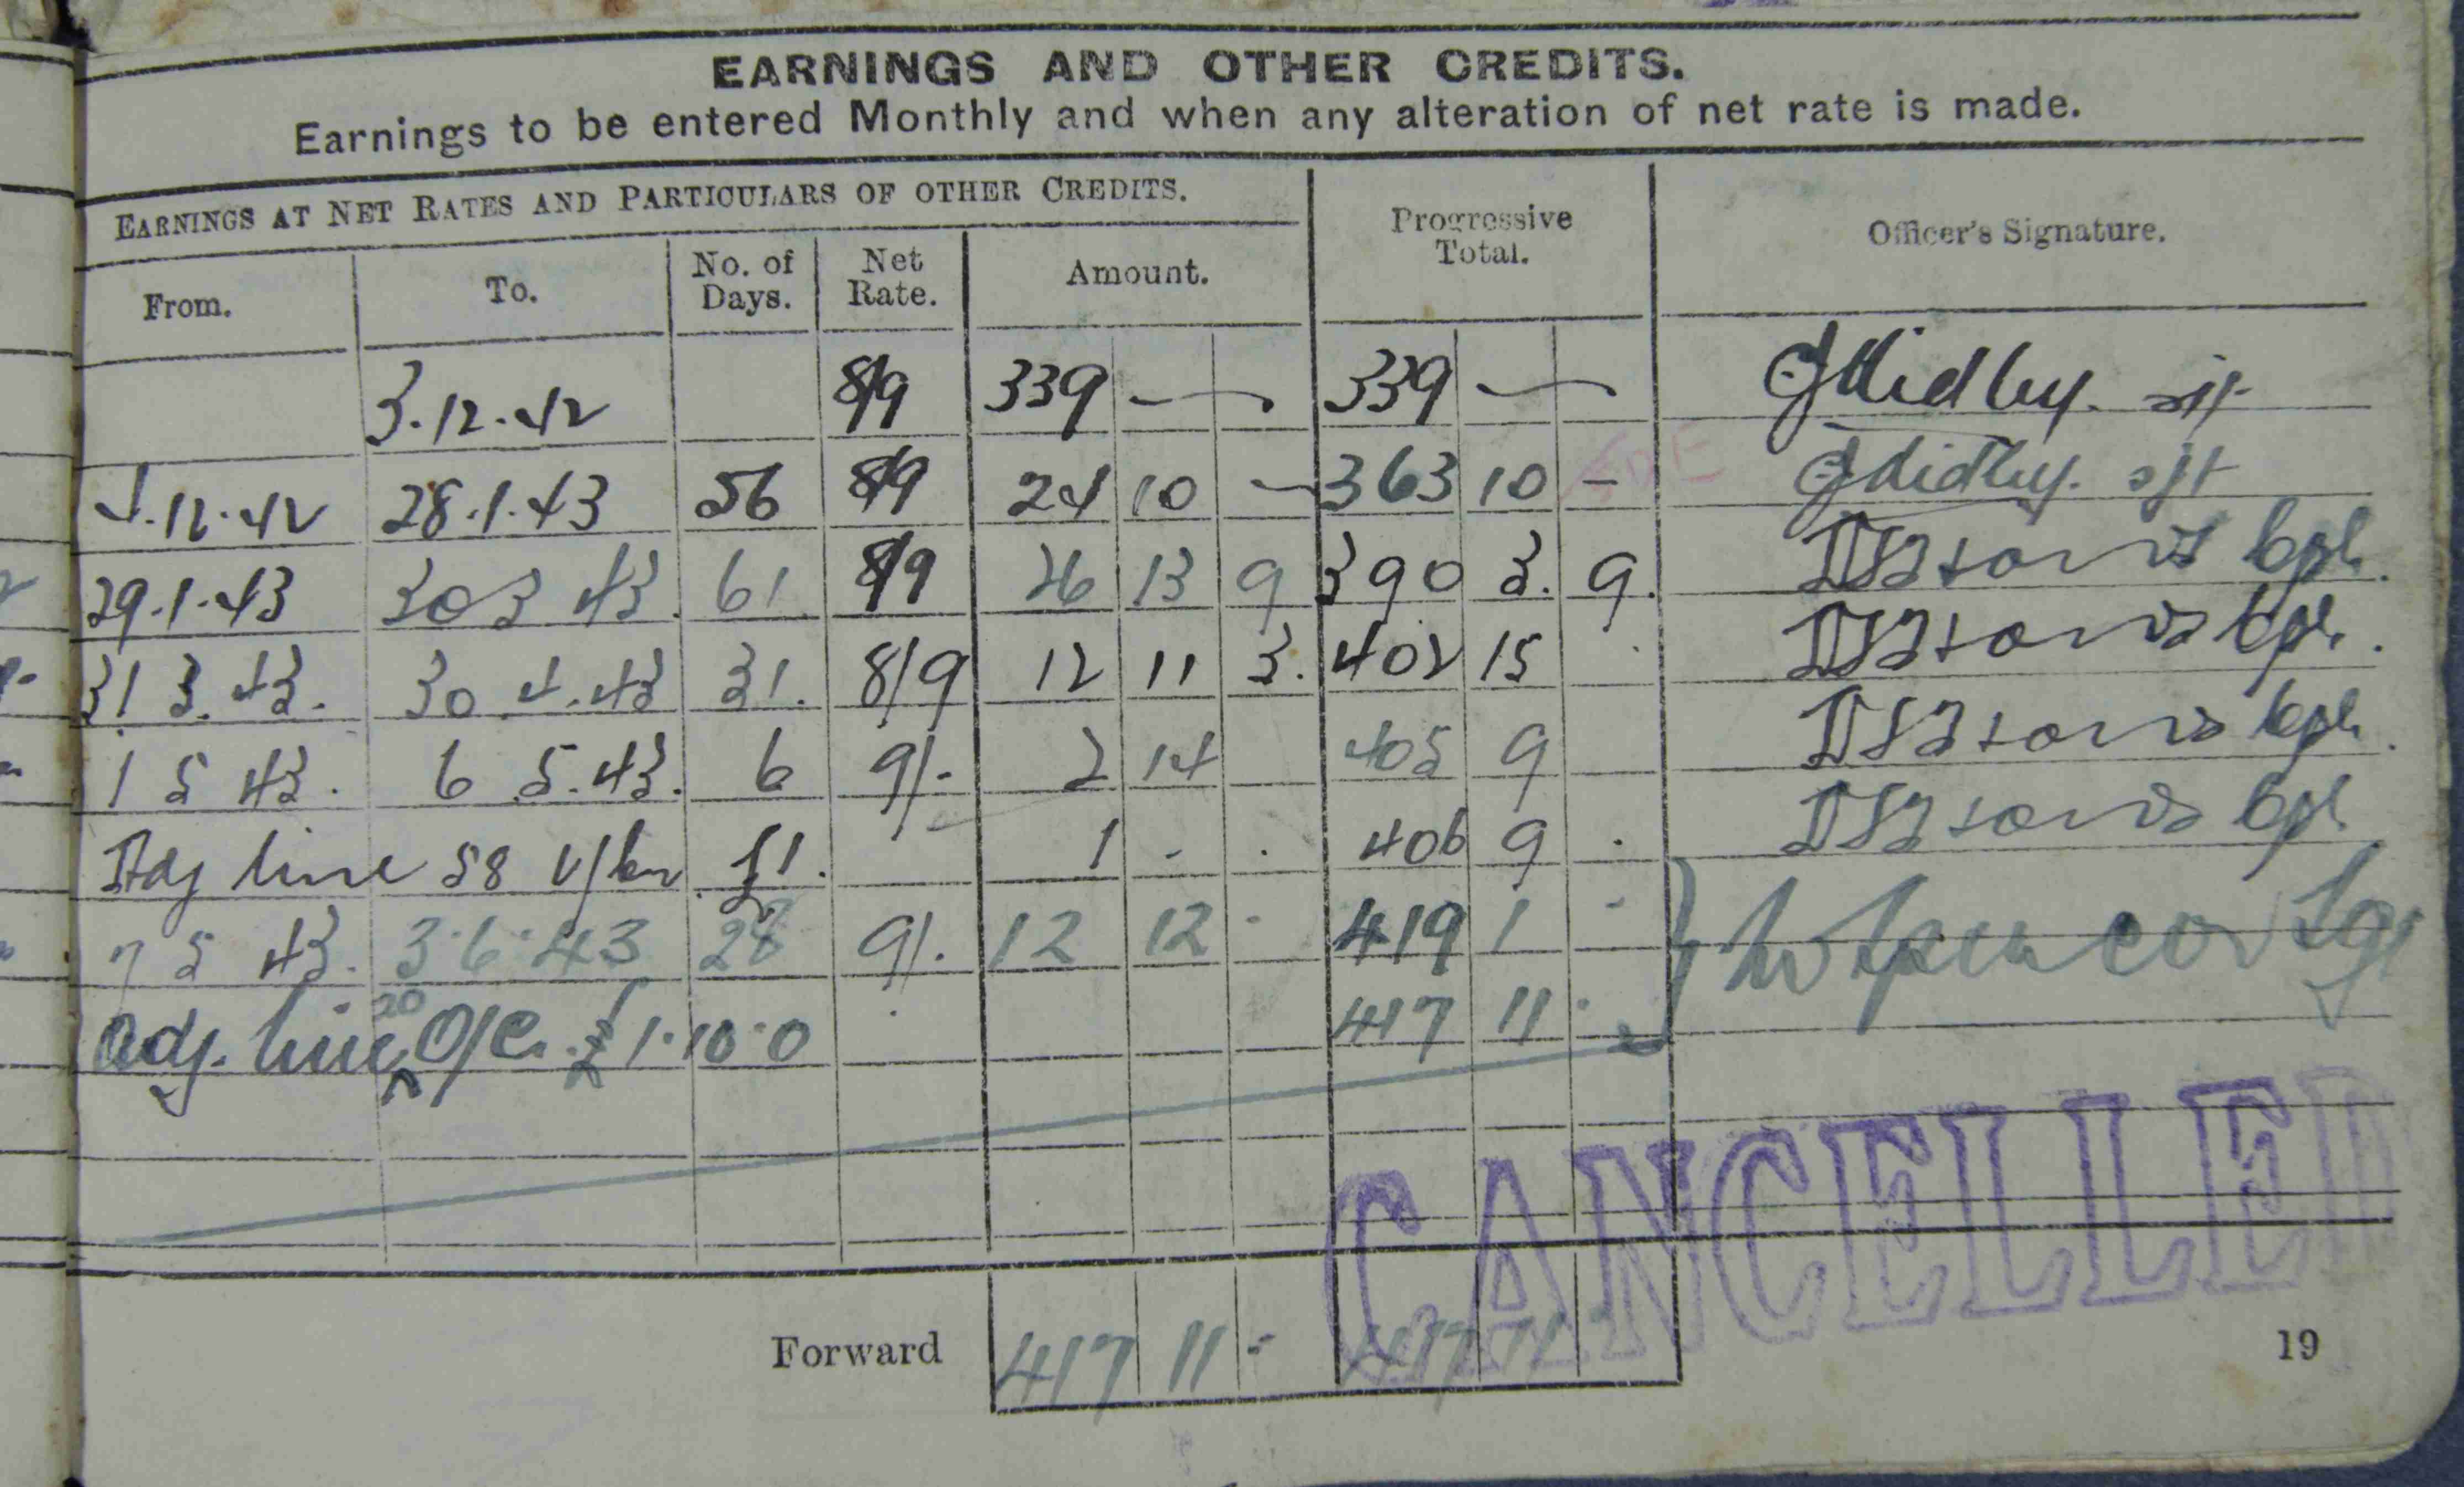 EARNINGS AND OTHER CREDITS.
Earnings to be entered Monthly and when any alteration of net rate is made.
EARNINGS AT NET RATES AND PARTICULARS OF OTHER CREDITS.
Progressive Total.
Officer's Signature.
From. To. No. of Days. Net Rate. Amount.
3.12.42 8/9 339 — 339 —
4.12.42 28.1.43 56 8/9 24 10 - 363 10 -
29.1.43 30 3 43. 61. 8/9 26 13 9 390 3. 9. Cpl.
31 3. 43. 30 4.43 31. 8/9 12 11 3. 402 15 Cpl.
1 5 43. 6 5.43. 6 9/- 2 14 405 9 Cpl.
Adj line 58 £1. 1 - . 406 9 . Cpl.
7 5 43. 3.6.43 28 9/. 12 12 - 419 1 -
Adj. line 20 O/C. £1.10.0 417 11 -
CANCELLED
Forward 417 11 - 417 11
19